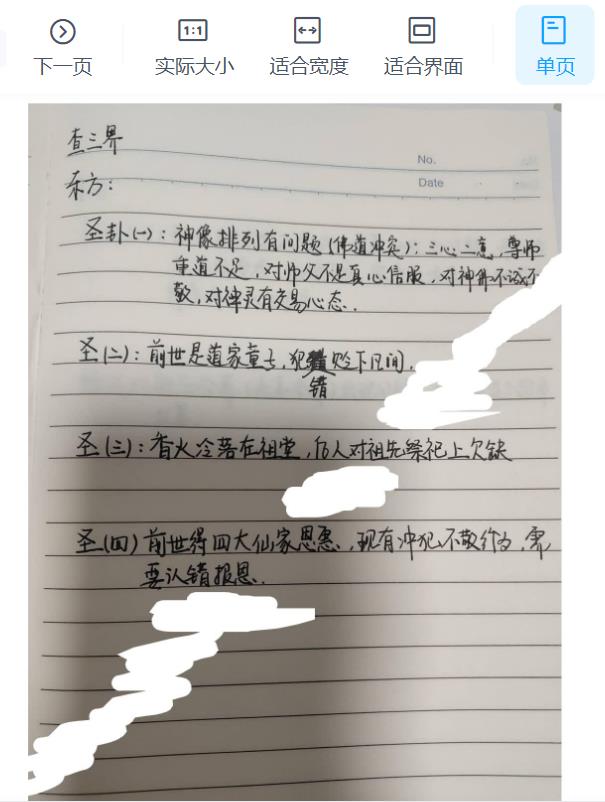 下一页
实际大小
适合宽度
适合界面
单页
1:1
查三界
No.
东方:
Date
圣卦(一):神像排列有问题(佛道冲突):三心二意,尊师
重道不足,对师父不是真心信服,对神佛不诚不
敬,对律灵有交易心态.
圣(二):前世是道家童子,犯 贬下凡间.
错
圣(三):香火冷落在祖堂,仍人对祖先祭祀上欠缺
圣(四)前世得四大仙家恩惠,现有冲犯不敬行为,需
要认错报恩.